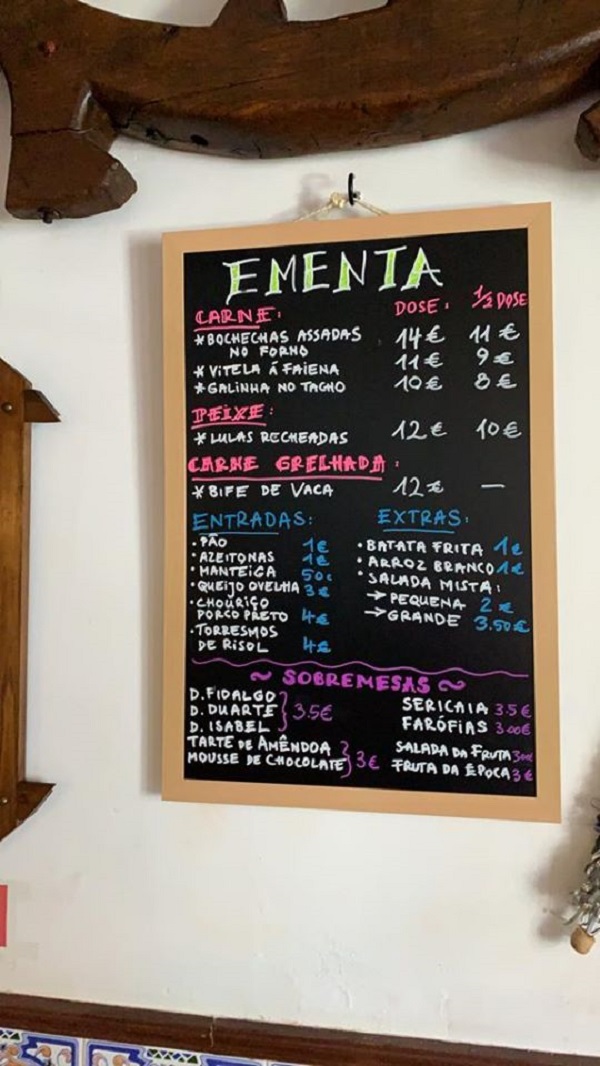 EMENTA
CARNE: DOSE: 1/2 DOSE
*BOCHECHAS ASSADAS
NO FORNO 14€ 11€
*VITELA Á FAIENA 11€ 9€
*GALINHA NO TACHO 10€ 8€
PEIXE:
*LULAS RECHEADAS 12€ 10€
CARNE GRELHADA:
*BIFE DE VACA 12€ —
ENTRADAS:
·PÃO 1€
·AZEITONAS 1€
·MANTEIGA 50c
·QUEIJO OVELHA 3€
·CHOURIÇO
PORCO PRETO 4€
·TORRESMOS
DE RISOL 4€
EXTRAS:
·BATATA FRITA 1€
·ARROZ BRANCO 1€
·SALADA MISTA:
→PEQUENA 2€
→GRANDE 3.50€
~ SOBREMESAS ~
D. FIDALGO
D. DUARTE } 3.5€
D. ISABEL
TARTE DE AMÊNDOA
MOUSSE DE CHOCOLATE } 3€
SERICAIA 3.5€
FARÓFIAS 3.00€
SALADA DA FRUTA 3.00€
FRUTA DA ÉPOCA 3€